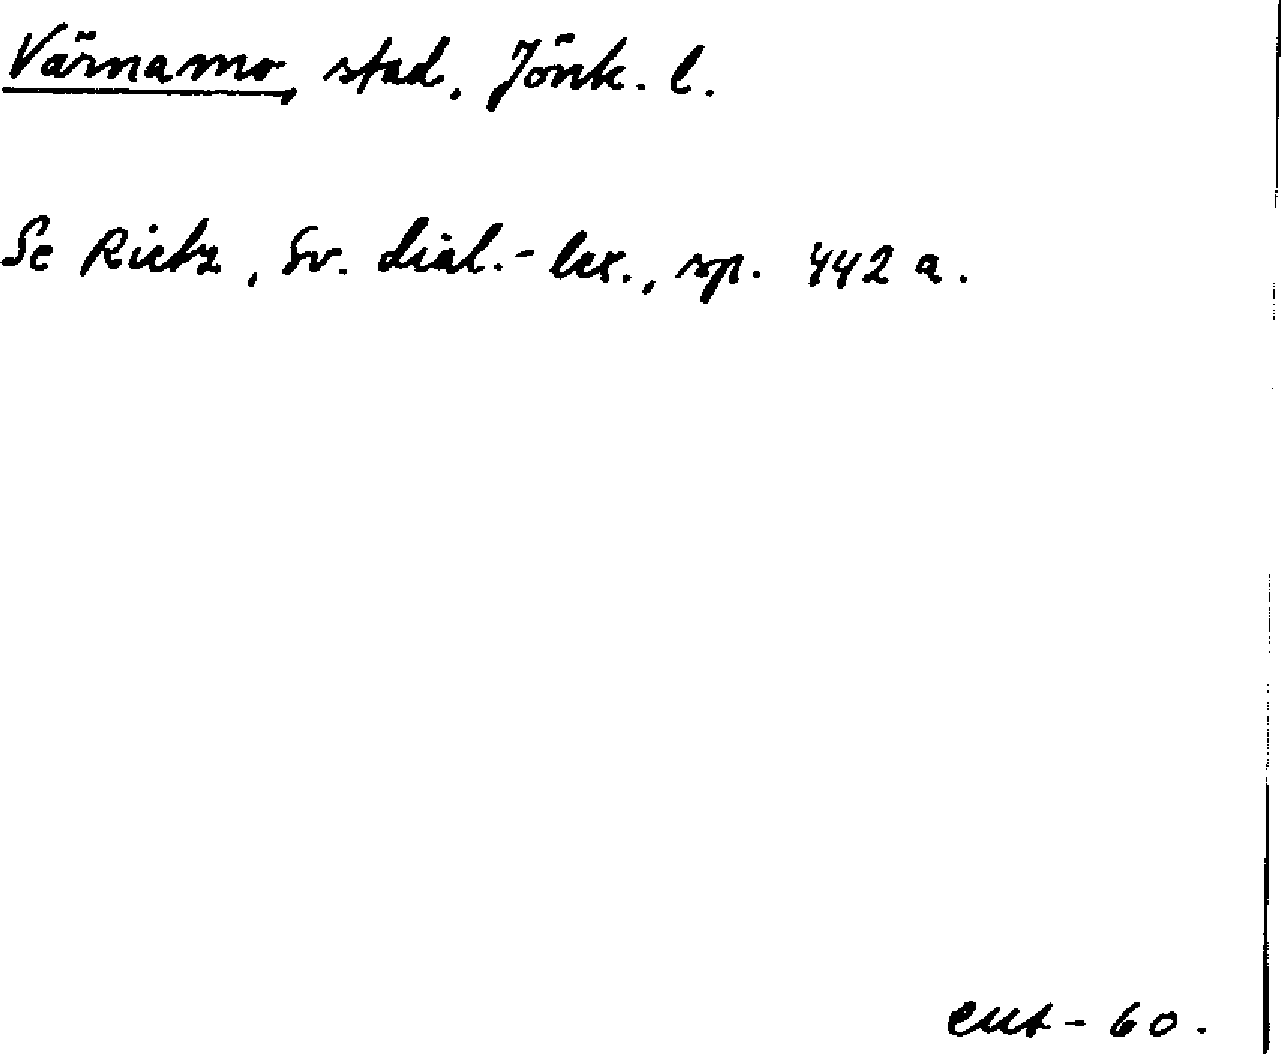 Värnamo, stad, Jönk. l.
Se Rietz, Sv. dial.-lex., sp. 442 a.
- 60.